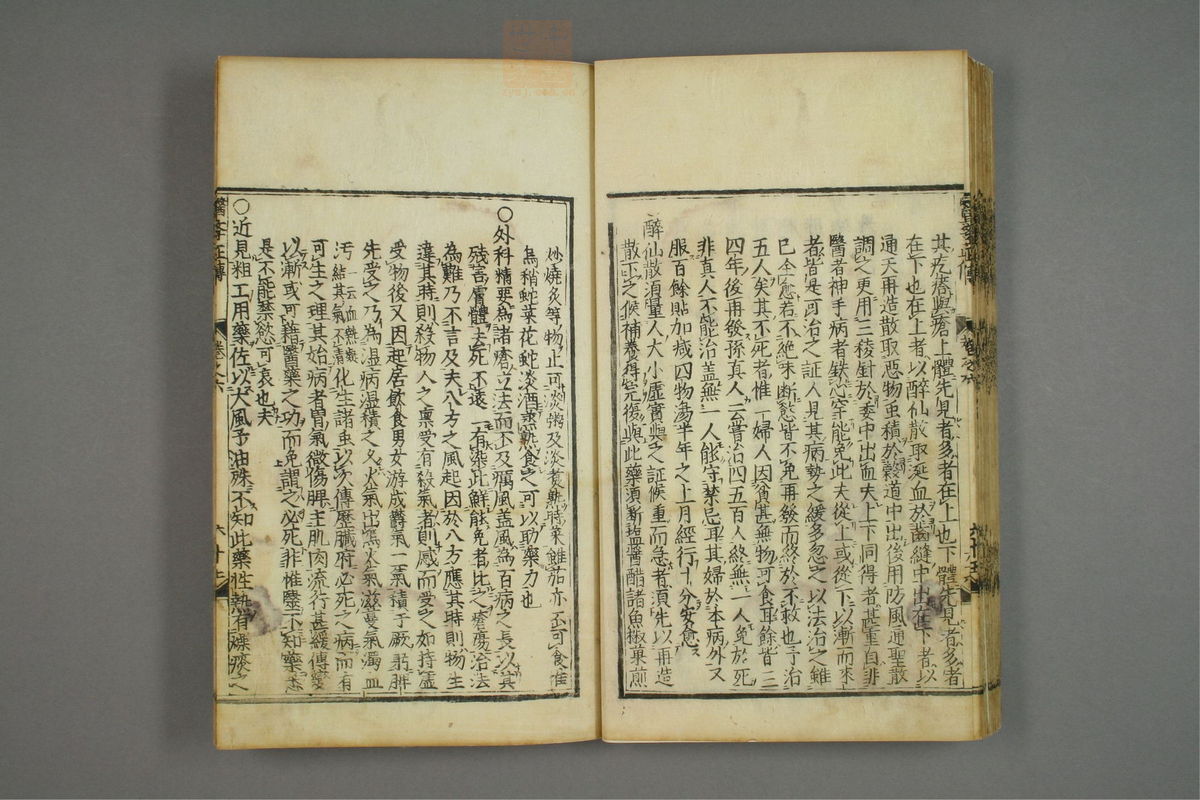 其疙瘩與瘡上體先見者多者在上也下體先見者多者
在下也在上者以醉仙散取涎血於齒縫中出在下者以
通天再造散取惡物虫積於穀道中出後用防風通聖散
調之更用三稜針於委中出血夫上下同得者甚重自非
醫者神手病者鉄心罕能免此夫從上或從下以漸而來
者皆是可治之証人見其病勢之緩多忽之以法治之雖
已全愈若不絶味断慾皆不免再發而終於不救也予治
五人矣其不死者惟一婦人因貧甚無物可食耳餘皆三
四年後再發孫真人云嘗治四五百人終無一人免於死
非真人不能治盖無一人能守禁忌耳其婦於本病外又
服百餘貼加减四物湯半年之上月經行十分安愈
醉仙散須量人大小虛實與之証候重而急者須先以再造
散下之候補養得完復與此藥須断塩醬醋諸魚椒菓煎
炒燒炙等物止可淡粥及淡煮熟時菜雖茄亦不可食惟
烏稍蛇菜花蛇淡酒煮熟食之可以助藥力也
○外科精要為諸瘡立法而不及癘風盖風為百病之長以其
殘害膚體去死不遠一有染此鮮能免者比之癰瘍治法
為難乃不言及夫八方之風起因於八方應其時則物生
違其時則殺物人之稟受有殺氣者則感而受之如持虛
受物後又因起居飲食男女游成欝氣一氣積于厥躬脾
先受之乃為濕病濕積之久火氣出焉火氣滋蔓氣濁血
汚一云血熱凝結其氣不清化生諸虫以次傳歷臟府必死之病而有
可生之理其始病者曽氣微傷脾主肌肉流行甚緩傳變
以漸或可藉醫藥之功而免謂之必死非惟醫不知藥患
是不能禁慾可哀也夫
○近見粗工用藥佐以大風子油殊不知此藥性熱有燥痰之
醫學正傳
卷之六